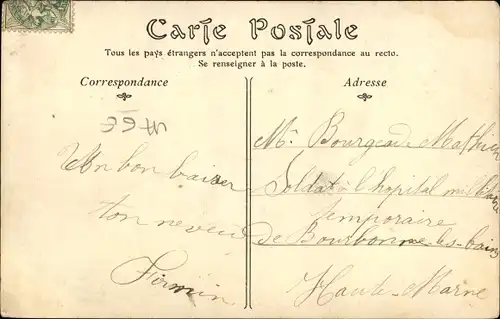 Carte Postale
Tous les pays étrangers n'acceptent pas la correspondance au recto.
Se renseigner à la poste.
Correspondance
Un bon baiser
ton neveu
Firmin
Adresse
Mr Bourgeade Mathieu
Soldat à l'hopital militaire
temporaire
de Bourbonne-les-bains
Haute-Marne